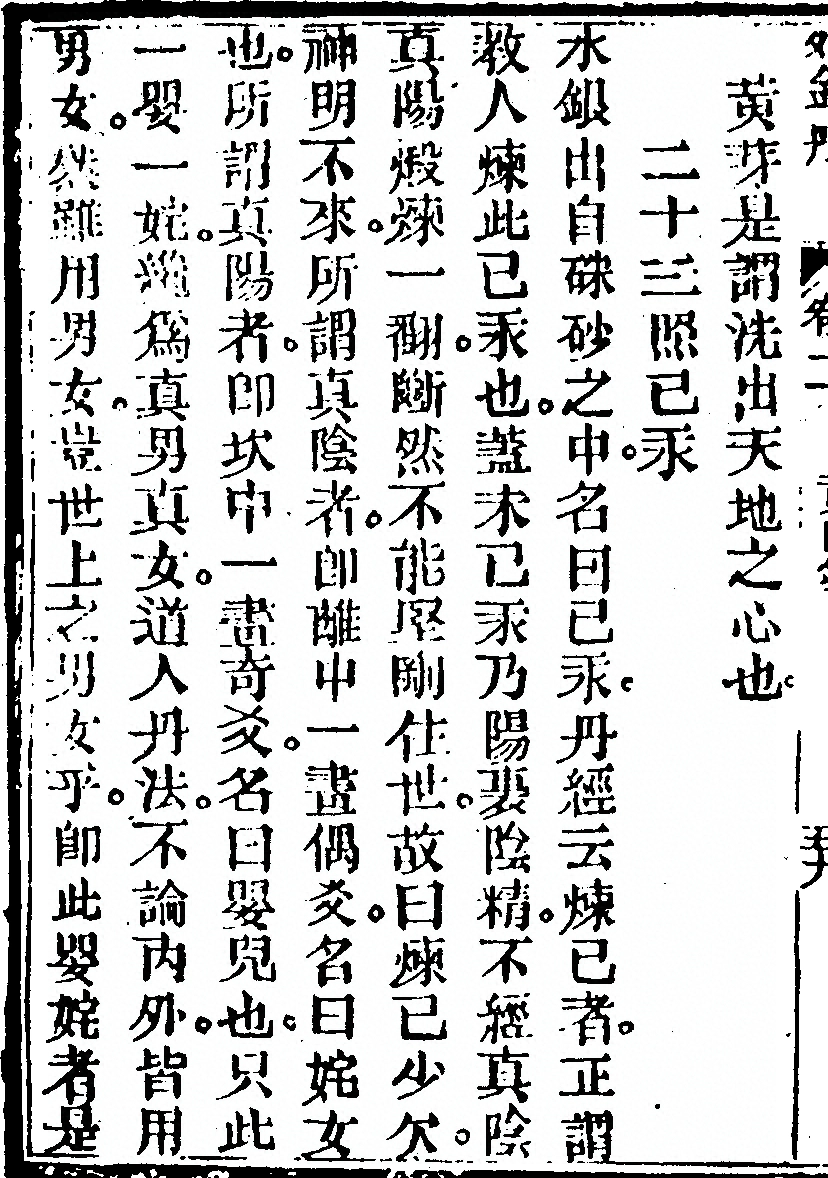 黄芽是謂洗出天地之心也。
二十三照己汞
水銀出自硃砂之中。名曰己汞。丹經云煉己者。正謂
教人煉此己汞也。蓋末己汞乃陽裹陰精。不經真陰
真陽煅煉一翻。斷然不能堅剛住世。故曰煉己少欠。
神明不來。所謂真陰者。卽離中一畫偶爻。名曰姹女
也。所謂真陽者。卽坎中一畫奇爻。名曰嬰兒也。只此
一嬰一姹。雖爲真男真女。道人丹法。不論内外。皆用
男女。然雖用男女。豈世上之男女乎。卽此嬰姹者是